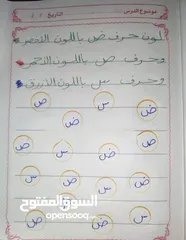 موضوع الدرس: التاريخ / /
لون حرف ض باللون الاصفر
وحرف ص باللون الاحمر
وحرف س باللون الازرق
ض س ص
ض ص
ص ض ض
س
ص س ض س
ض ص
س ض ص ص
السوق المفتوح
opensooq.com